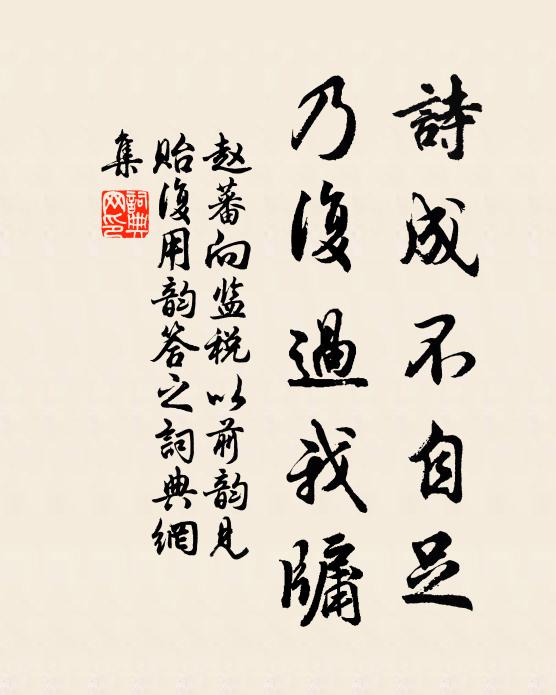 詩成不自足
乃復過我牖
赵蕃向监税以前韵見
贻復用韵答之詞典網
集
詞典
网印